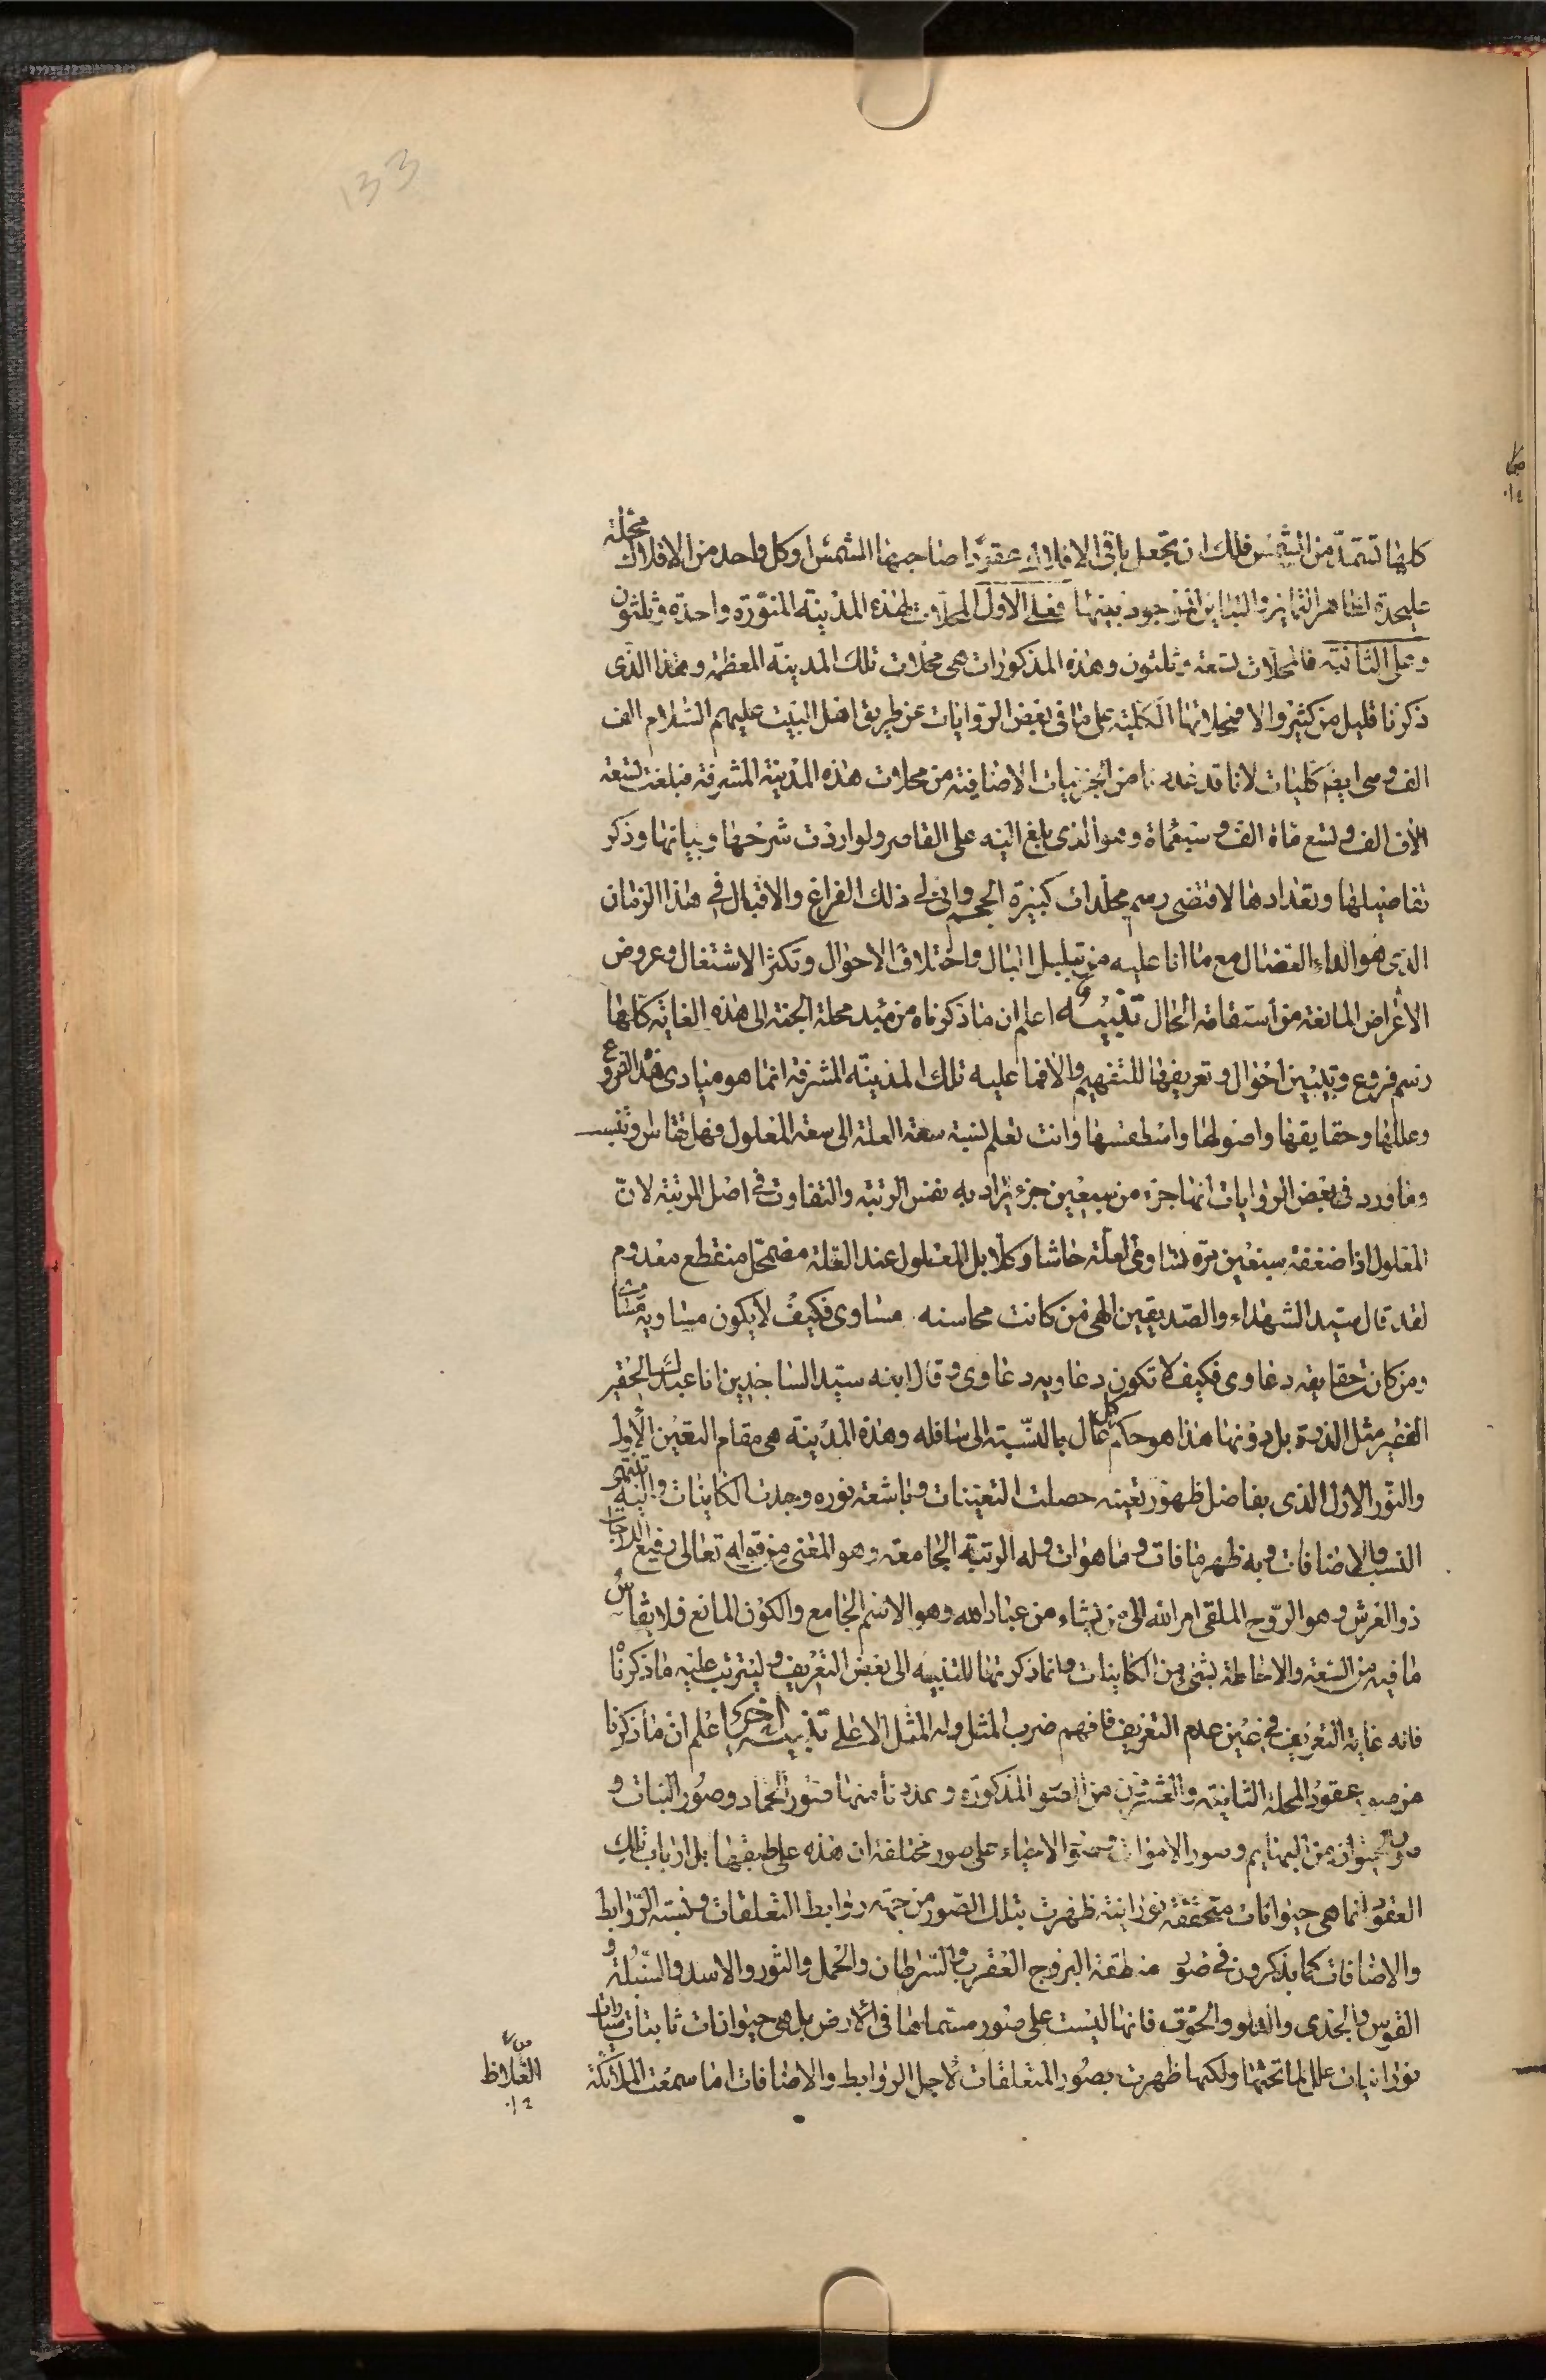 133
كلها تستمدّ من الشمس فلك ان تجعل باقى الافلاك عقودا صاحبها الشمس او كل واحد من الافلاك محلة
عليحدة لظاهر التمايز والتباين الموجود بينها فعلى الاول المحلات لهذه المدينة المنوّرة واحدة وثلثون
وعلى الثانية فالمحلات تسعة وثلثون وهذه المذكورات هى محلات تلك المدينة المعظمة وهذا الذى
ذكرنا قليل من كثير والا فمحلاتها الكلية على ما فى بعض الروايات عن طريق اهل البيت عليهم السلام الف
الف وهى ايضم كليات لانا قد عددنا من الجزئيات الاضافية من محلات هذه المدينة المشرفة فبلغت تسعة
الاف الف وتسع ماة الف وسبعماة وهو الذى بلغ اليه على القاصر ولو اردت شرحها وبيانها وذكر
تفاصيلها وتعدادها لاقتضى رسم مجلدات كبيرة الحجم وانى لى ذلك الفراغ والاقبال فى هذا الزمان
الذى هو الداء العضال مع ما انا عليه من تبلبل البال واختلاف الاحوال وتكثر الاشتغال وعروض
الاغراض المانعة من استقامة الحال تنبيه اعلم ان ما ذكرناه من مبد محلة الجنة الى هذه الغاية كلها
رسم فروع وتبيين احوال وتعريفها للتفهيم والا فما عليه تلك المدينة المشرفة انما هو مبادى هذا الفروع
وعللها وحقايقها واصولها واسطقسها وانت تعلم نسبة سعة العلة الى سعة المعلول فهل تقاس وتنسب
وما ورد فى بعض الروايات انها جزء من سبعين جزء يراد به نفس الرتبة والتفاوت فى اصل المرتبة لانّ
المعلول اذا ضعفته سبعين مرّه تساوى العلة حاشا وكلا بل المعلول عند العلة مضمحل منقطع معدوم
لقد قال سيد الشهداء والصديقين الهى من كانت محاسنه مساوى فكيف لا يكون مساويه مساوى
ومن كانت حقايقه دعاوى فكيف لا تكون دعاويه دعاوى وقال ابنه سيّد الساجدين انا عبدك الحقير
الفقير مثل الذرة بل دونها هذا هو حكم كل عال بالنسبة الى سافله وهذه المدينة هى مقام التعيّن الاول
والنّور الاول الذى بفاضل ظهور تعينه حصلت التعينات وباشعة نوره وجدت الكاينات واليه تنتهى
النسب والاضافات وبه ظهر ما فات وما هوات وله الرتبة الجامعة وهو المعنى من قوله تعالى رفيع الدرجات
ذو العرش وهو الروح الملقى امر الله الى من يشاء من عباد الله وهو الاسم الجامع والكون المانع فلا يقاس
ما فيه من السعة والاحاطة بشئ من الكاينات وانما ذكرتها للتنبيه الى بعض التعريف وليترتب عليه ما ذكرنا
فانه غاية التعريف فى عين عدم التعريف فافهم ضرب المثل وله المثل الاعلى تذييل اخرى اعلم ان ما ذكرنا
من صور عقود المحلة الثانية والعشرين من الصور المذكورة وعددنا منها صور الجماد وصور النبات و
صور الحيوان من البهايم وصور الاموات وصور الاحياء على صور مختلفة ان هذه على طبقها بل ارباب تلك
العقود انما هى حيوانات متحققة نورانية ظهرت بتلك الصور من جهة روابط التعلقات ونسبة الروابط
والاضافات كما يذكرون فى صور منطقة البروج العقرب والسرطان والحمل والثور والاسد والسنبلة و
القوس والجدى والدلو والحوت فانها ليست على صور مسمياتها فى الارض بل هى حيوانات ثابتات
نورانيات علل لما تحتها ولكنها ظهرت بصور المتعلقات لاجل الروابط والاضافات اما سمعت الملائكة
الغلاظ